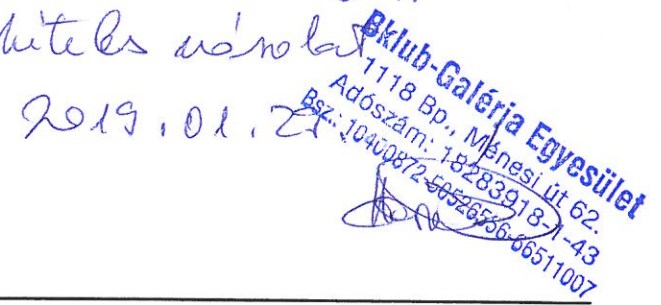 hiteles másolat
2019.01.
Bklub-Galérja Egyesület
1118 Bp., Ménesi út 62.
Adószám: 18283918-1-43
Bsz.: 10400872-50526556-66511007